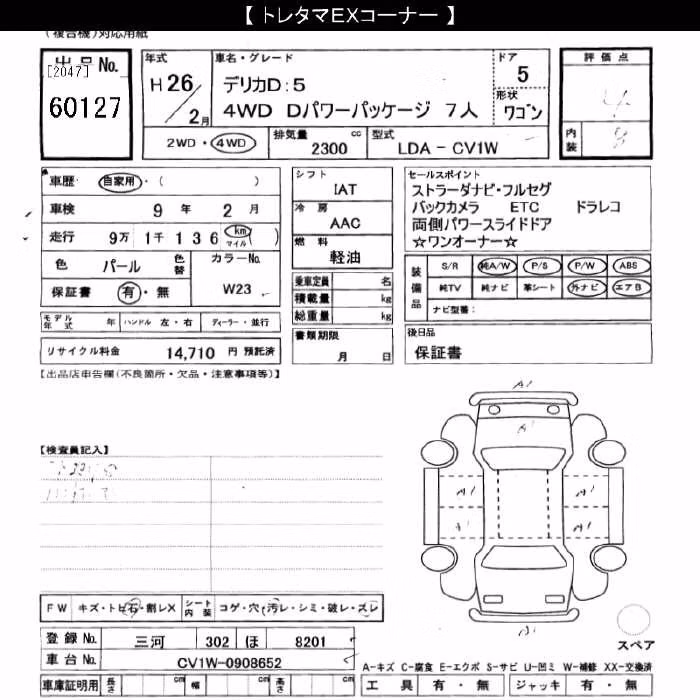 【 トレタマEXコーナー 】
(複合機)対応用紙
出品No.
[2047]
60127
年式
H26/2月
車名・グレード
デリカD:5
4WD Dパワーパッケージ 7人
ドア
5
形状
ワゴン
2WD・4WD
排気量 2300 cc
型式 LDA - CV1W
評価点
4
内装
B
車歴 自家用・( )
車検 9年 2月
走行 9万1千136 km マイル ( )
色 パール 色替
カラーNo. W23
保証書 有・無
モデル年式 年 ハンドル 左・右 ディーラー・並行
リサイクル料金 14,710 円 預託済
シフト
IAT
冷房
AAC
燃料
軽油
乗車定員 名
積載量 kg
総重量 kg
書類期限
月 日
セールスポイント
ストラーダナビ・フルセグ
バックカメラ ETC ドラレコ
両側パワースライドドア
☆ワンオーナー☆
装備品
S/R 純A/W P/S P/W ABS
純TV 純ナビ 革シート 外ナビ エアB
ナビ型番:
後日品
保証書
【出品店申告欄(不良箇所・欠品・注意事項等)】
【検査員記入】
A1
A1
A1
A1
A1
A1
A1
FW キズ・トビ石・割レX シート内装 コゲ・穴・汚レ・シミ・破レ・スレ
登録No. 三河 302 ほ 8201
車台No. CV1W-0908652
車庫証明用 長さ cm 幅 cm 高さ cm
スペア
A-キズ C-腐食 E-エクボ S-サビ U-凹ミ W-補修 XX-交換済
工具 有・無 ジャッキ 有・無